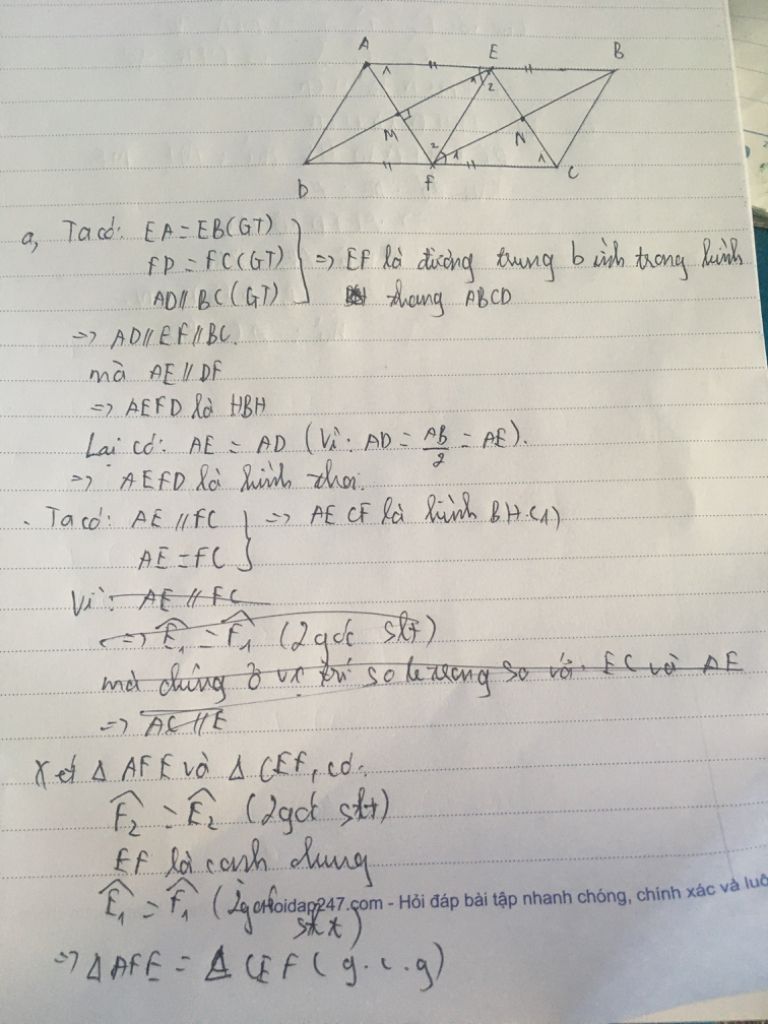 A E B
1 1 2
M N
2 1 1
D F C
a, Ta có: EA = EB (GT)
FD = FC (GT) => EF là đường trung bình trong hình
AD // BC (GT) thang ABCD
=> AD // EF // BC.
mà AE // DF
=> AEFD là HBH
Lại có: AE = AD (Vì: AD = AB/2 = AE).
=> AEFD là hình thoi.
- Ta có: AE // FC => AECF là hình BH (1)
AE = FC
Vì: AE // FC
=> E1 = F1 (2 góc slt)
mà chúng ở vị trí so le trong so với EC và AE
=> AC // E
Xét Δ AFE và Δ CEF, có:
F2 = E2 (2 góc slt)
EF là cạnh chung
E1 = F1 (2 góc
Hoidap247.com - Hỏi đáp bài tập nhanh chóng, chính xác và luô
=> Δ AFE = Δ CEF (g.c.g)